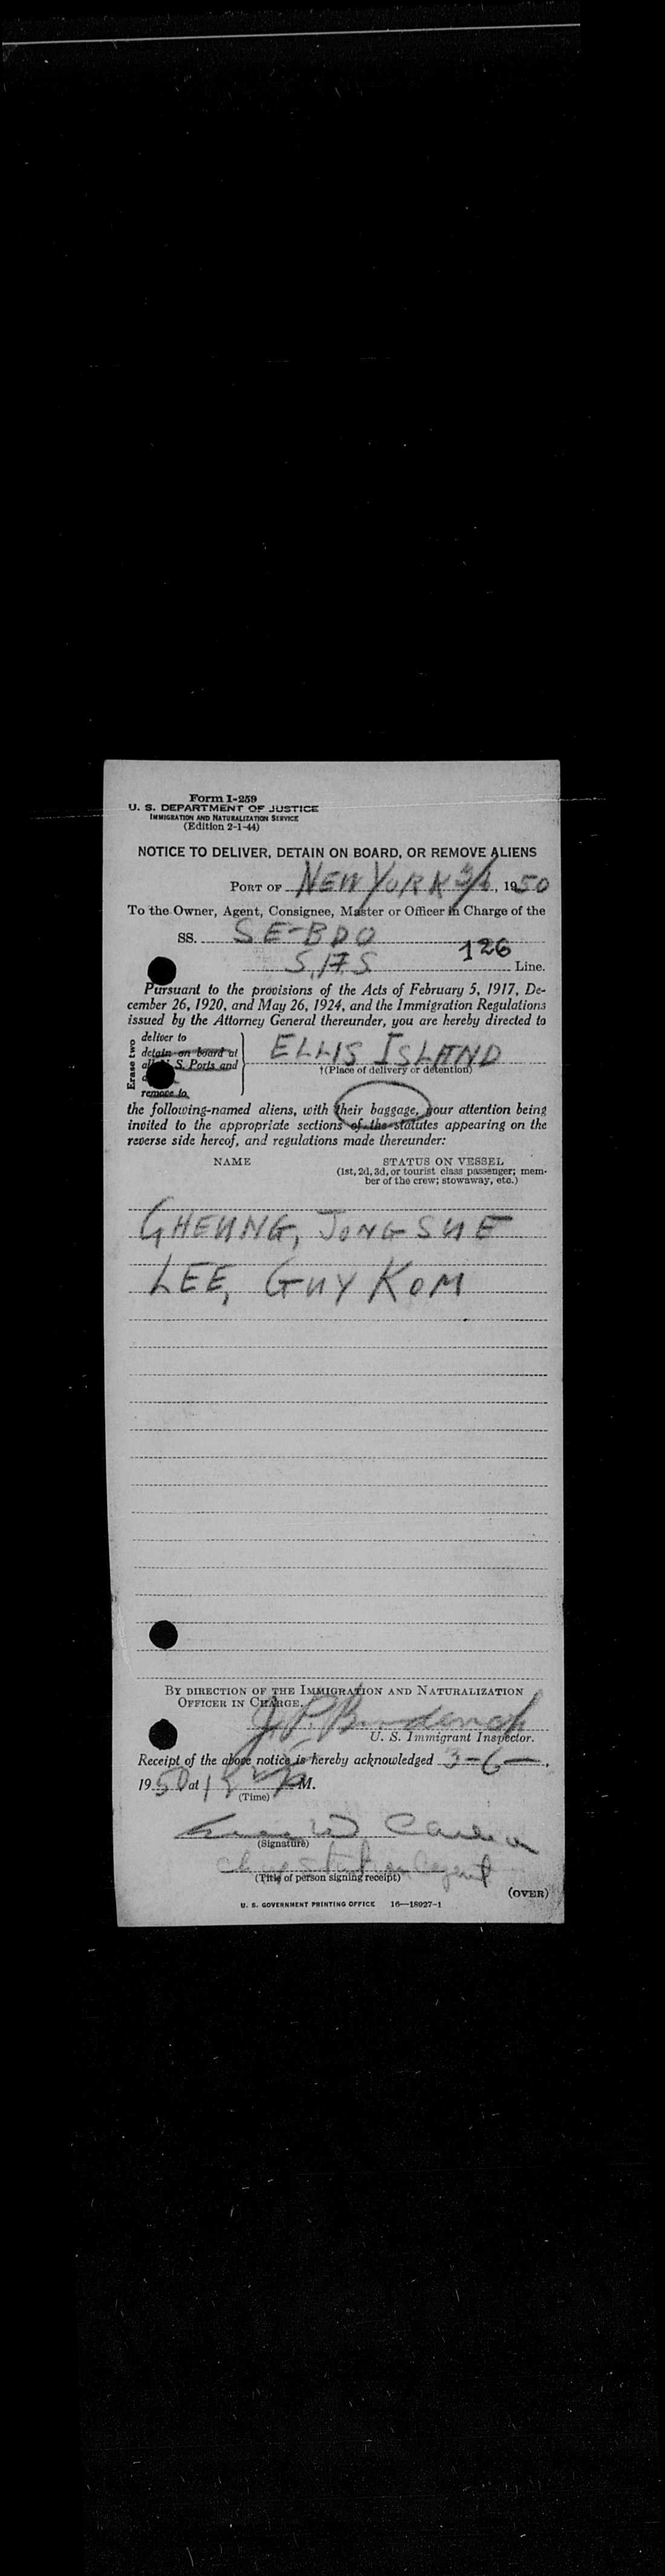 Form I-259
U. S. DEPARTMENT OF JUSTICE
IMMIGRATION AND NATURALIZATION SERVICE
(Edition 2-1-44)
NOTICE TO DELIVER, DETAIN ON BOARD, OR REMOVE ALIENS
PORT OF NEW YORK 3/6, 1950
To the Owner, Agent, Consignee, Master or Officer in Charge of the
SS. SE-BDO
126
Line.
Pursuant to the provisions of the Acts of February 5, 1917, De-
cember 26, 1920, and May 26, 1924, and the Immigration Regulations
issued by the Attorney General thereunder, you are hereby directed to
Erase two
deliver to
detain on board at
S. Ports and
remove to
ELLIS ISLAND
†(Place of delivery or detention)
the following-named aliens, with their baggage, your attention being
invited to the appropriate sections of the statutes appearing on the
reverse side hereof, and regulations made thereunder:
NAME STATUS ON VESSEL
(1st, 2d, 3d, or tourist class passenger; mem-
ber of the crew; stowaway, etc.)
CHEUNG, JONG SUE
LEE, GUY KOM
BY DIRECTION OF THE IMMIGRATION AND NATURALIZATION
OFFICER IN CHARGE.
J. P.
U. S. Immigrant Inspector.
Receipt of the above notice is hereby acknowledged 3-6-,
1950 at M.
(Time)
W
(Signature)
agent
(Title of person signing receipt)
(OVER)
U. S. GOVERNMENT PRINTING OFFICE 16—18027-1